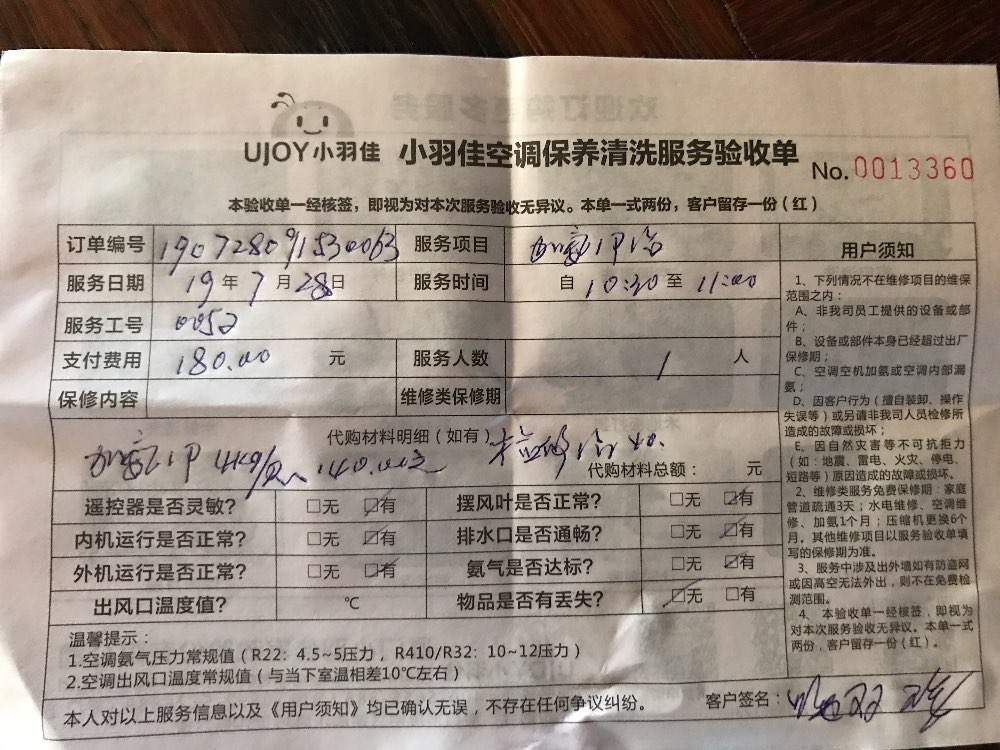 UJOY小羽佳 小羽佳空调保养清洗服务验收单
No.0013360
本验收单一经核签，即视为对本次服务验收无异议。本单一式两份，客户留存一份（红）
订单编号 190728091530063 服务项目
服务日期 19年7月28日 服务时间 自10:30至11:00
服务工号 0052
支付费用 180.00 元 服务人数 1 人
保修内容 维修类保修期
代购材料明细（如有）
140.00元 40.
代购材料总额： 元
遥控器是否灵敏？ □无 ☑有 摆风叶是否正常？ □无 ☑有
内机运行是否正常？ □无 ☑有 排水口是否通畅？ □无 ☑有
外机运行是否正常？ □无 ☑有 氨气是否达标？ □无 ☑有
出风口温度值？ ℃ 物品是否有丢失？ ☑无 □有
温馨提示：
1.空调氨气压力常规值（R22：4.5~5压力，R410/R32：10~12压力）
2.空调出风口温度常规值（与当下室温相差10℃左右）
本人对以上服务信息以及《用户须知》均已确认无误，不存在任何争议纠纷。 客户签名：
用户须知
1、下列情况不在维修项目的维保
范围之内：
A、非我司员工提供的设备或部
件；
B、设备或部件本身已经超过出厂
保修期；
C、空调空机加氨或空调内部漏
氨；
D、因客户行为（擅自装卸、操作
失误等）或另请非我司人员检修所
造成的故障或损坏；
E、因自然灾害等不可抗拒力
（如：地震、雷电、火灾、停电、
短路等）原因造成的故障或损坏。
2、维修类服务免费保修期：家庭
管道疏通3天；水电维修、空调维
修、加氨1个月；压缩机更换6个
月。其他维修项目以服务验收单填
写的保修期为准。
3、服务中涉及出外墙如有防盗网
或因高空无法外出，则不在免费检
测范围。
4、本验收单一经核签，即视为
对本次服务验收无异议。本单一式
两份，客户留存一份（红）。